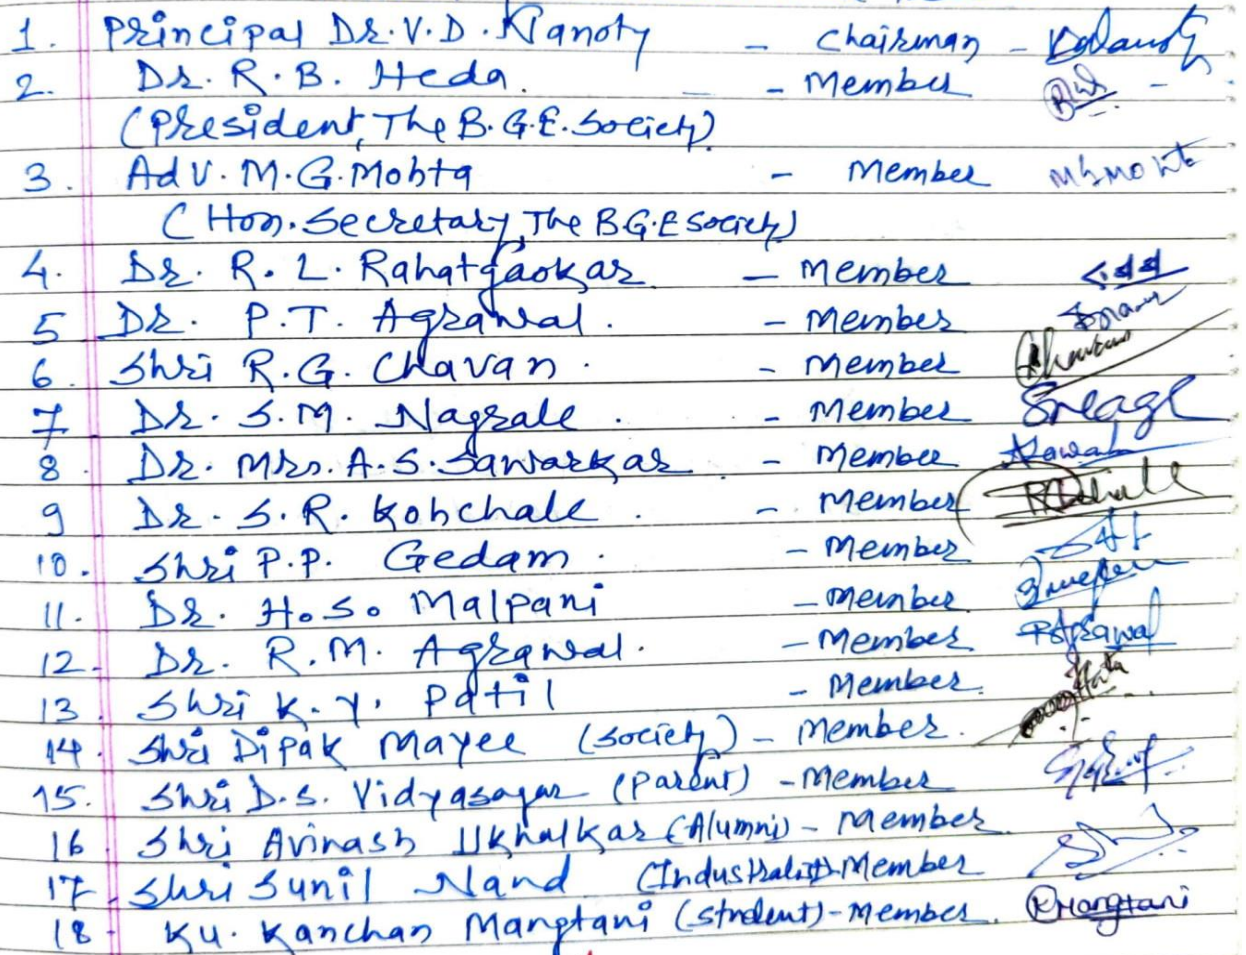 1. Principal Dr. V. D. Nanoty - Chairman -
2. Dr. R. B. Heda. - Member
(President, The B.G.E. Society)
3. Adv. M. G. Mohta - Member M G Mohta
(Hon. Secretary, The B.G.E Society)
4. Dr. R. L. Rahatgaokar - Member
5 Dr. P. T. Agrawal. - Member
6. Shri R. G. Chavan. - Member
7 Dr. S. M. Nagrale. - Member
8. Dr. Mrs. A. S. Sawarkar - Member
9 Dr. S. R. Kohchale. - Member
10. Shri P. P. Gedam. - Member
11. Dr. H. S. Malpani - Member
12. Dr. R. M. Agrawal. - Member RAgrawal
13. Shri K. Y. Patil - Member.
14. Shri Dipak Mayee (Society) - Member.
15. Shri D. S. Vidyasagar (Parent) - Member
16 Shri Avinash Ukhalkar (Alumni) - Member
17. Shri Sunil Nand (Industralist) - Member
18. Ku. Kanchan Mangtani (Student) - Member. KMangtani